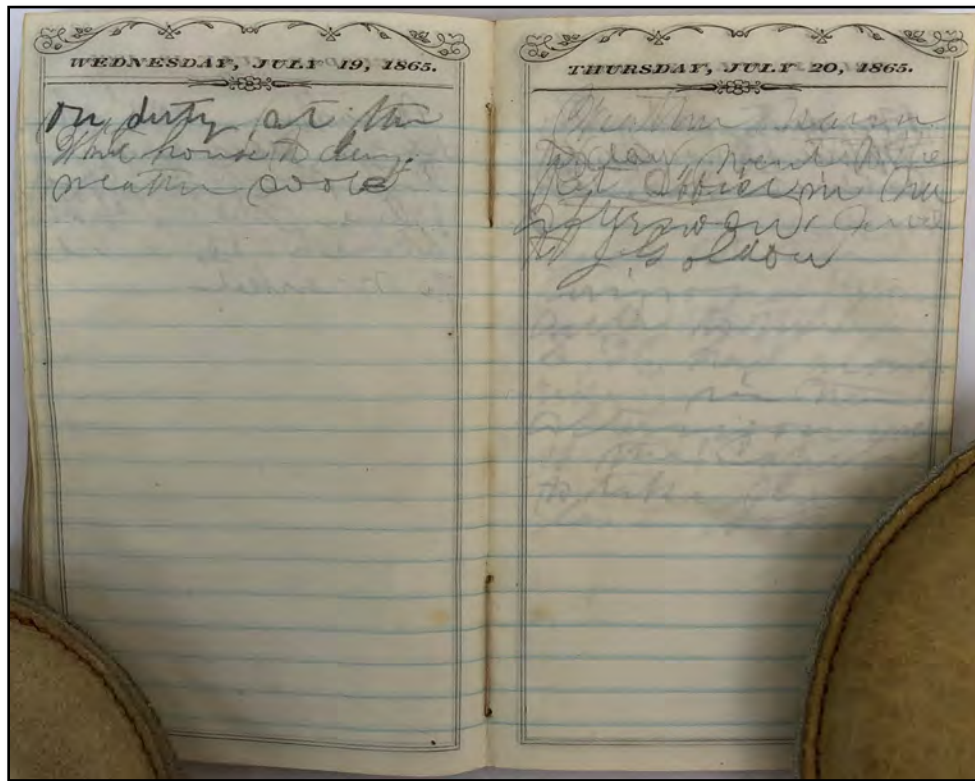 WEDNESDAY, JULY 19, 1865.
on duty at the
White house to day
weather coole
THURSDAY, JULY 20, 1865.
Weather warm
to day went to the
Pst office in the
afternoon